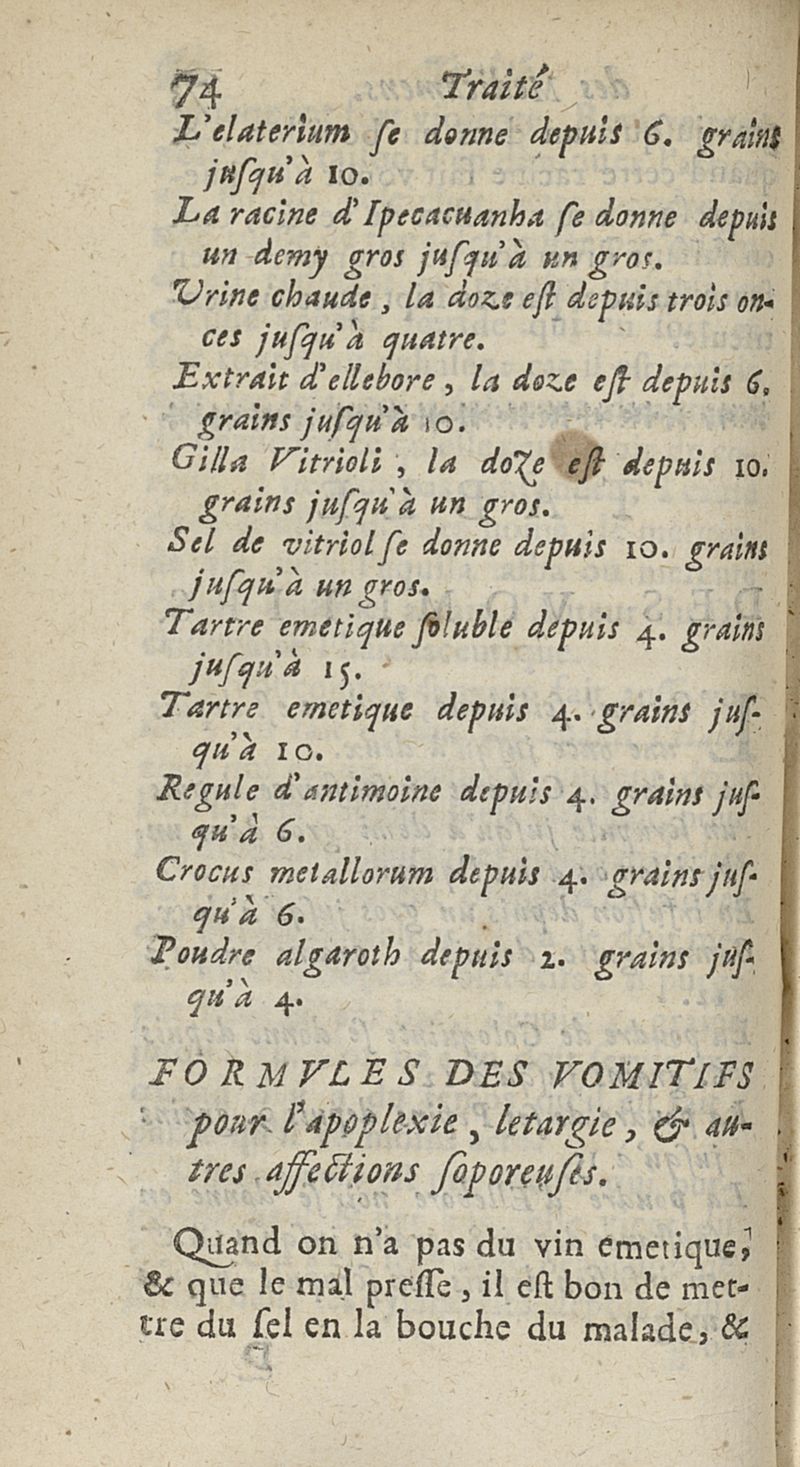 74 Traité
L'elaterium ſe donne depuis 6. grains
juſqu'à 10.
La racine d'Ipecacuanha ſe donne depuis
un demy gros juſqu'à un gros.
Vrine chaude, la doze eſt depuis trois on-
ces juſqu'à quatre.
Extrait d'ellebore, la doze eſt depuis 6.
grains juſqu'à 10.
Gilla Vitrioli, la doze eſt depuis 10.
grains juſqu'à un gros.
Sel de vitriol ſe donne depuis 10. grains
juſqu'à un gros.
Tartre emetique ſoluble depuis 4. grains
juſqu'à 15.
Tartre emetique depuis 4. grains juſ-
qu'à 10.
Regule d'antimoine depuis 4. grains juſ-
qu'à 6.
Crocus metallorum depuis 4. grains juſ-
qu'à 6.
Poudre algaroth depuis 2. grains juſ-
qu'à 4.
FORMVLES DES VOMITIFS
pour l'apoplexie, letargie, & au-
tres affections ſoporeuſes.
Quand on n'a pas du vin emetique,
& que le mal preſſe, il eſt bon de met-
tre du ſel en la bouche du malade, &